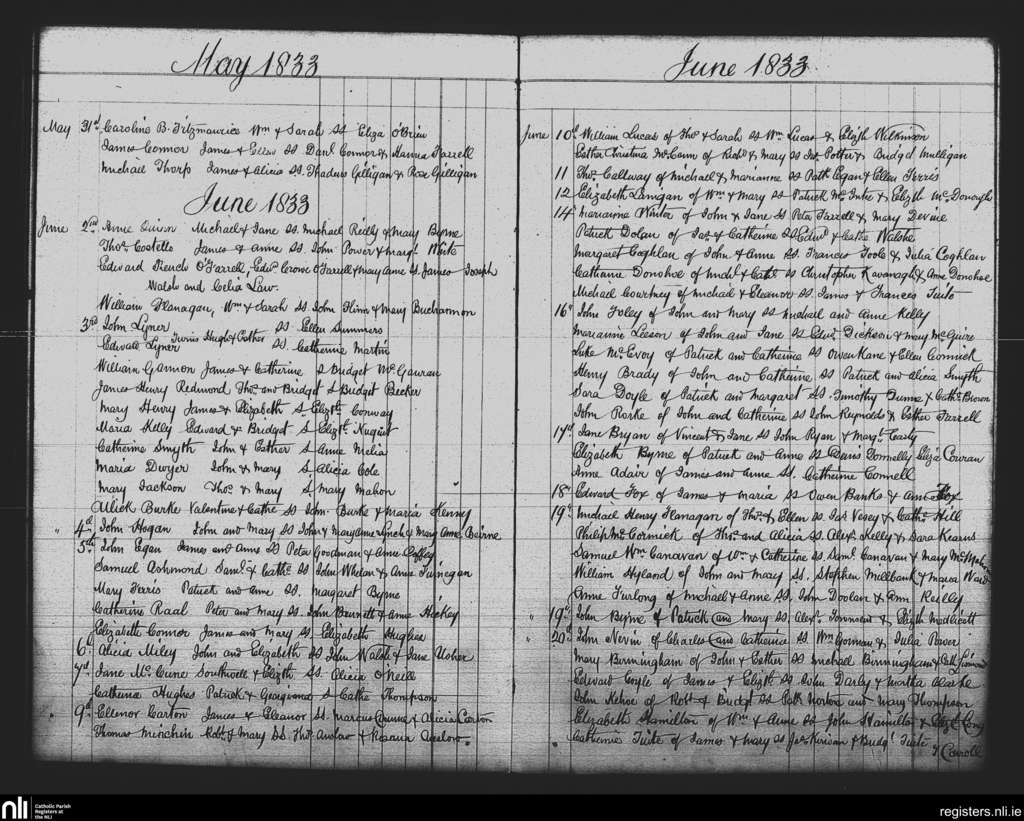 May 1833
May 31st Caroline B. Fitzmaurice Wm & Sarah SS Eliza O'Brien
James Connor James & Ellen SS Danl Connor & Hanna Farrell
Michael Thorp James & Alicia SS Thadeus Gilligan & Rose Gilligan
June 1833
June 2nd Annie Quinn Michael & Jane SS Michael Reilly & Mary Byrne
Thos Costello James & Anne SS John Power & Margt White
Edward French O'Farrell, Edwd Crowe O'Farrell & Mary Anne SS James Joseph
Walsh and Celia Law.
William Flanagan, Wm & Sarah SS John Flinn & Mary Buchannon
3rd John Lyner SS Ellen Summers
Twins Hugh & Esther
Edward Lyner SS Catherine Martin
William Gannon James & Catherine S Bridget McGauran
James Henry Redmond Thos and Bridget S Bridget Becker
Mary Henry James & Elizabeth S Elizth Conway
Maria Kelly Edward & Bridget S Elizth Nugent
Catherine Smyth John & Esther S Anne Melia
Maria Dwyer John & Mary S Alicia Cole
Mary Jackson Thos & Mary S Mary Mahon
Ulick Burke Valentine & Cathe SS John Burke & Maria Kenny
" 4th John Hogan John and Mary SS John & Mary Anne Lynch & Mary Anne Beirne
5th John Egan James and Anne SS Peter Goodman & Anne Coffey
Samuel Ashmond Saml & Cathe SS John Whelan & Anne Finnegan
Mary Ferris Patrick and Anne SS Margaret Byrne
Catherine Raal Peter and Mary SS John Bennett & Anne Hickey
Elizabeth Connor James and Mary SS Elizabeth Hughes
6th Alicia Miley John and Elizabeth SS John Walsh & Jane Usher
7th Jane McCune Southwell & Elizth SS Alicia O'Neill
Catherine Hughes Patrick & Georgianna S Cathe Thompson
" 9th Ellenor Carton James & Eleanor SS Marcus & Alicia Carton
Thomas Minchin Robt & Mary SS Thos Anslow & Rosanna Anslow
June 1833
June 10th William Lucas of Thos & Sarah SS Wm Lucas & Elizth Wilkinson
Esther Christina McCann of Richd & Mary SS Jas Potter & Bridgt Mulligan
11 Thos Callaway of Michael & Marianne SS Patk Egan & Ellen Ferris
12 Elizabeth Lanigan of Wm & Mary SS Patrick McIntee & Elizth McDonough
14 Marianne Winter of John & Jane SS Peter Farrell & Mary Devine
Patrick Dolan of Jas & Catherine SS Edwd & Cathe Walshe
Margaret Coghlan of John & Anne SS Francis Toole & Julia Coghlan
Catherine Donohoe of Michl & Cathe SS Christopher Kavanagh & Anne Donohoe
Michael Courtney of Michael & Eleanor SS James & Frances Tuite
16th John Foley of John and Mary SS Michael and Anne Kelly
Marianne Leeson of John and Jane SS Edwd Dickson & Mary McGuire
Luke McEvoy of Patrick and Catherine SS Owen Kane & Ellen Cormick
Henry Brady of John and Catherine SS Patrick and Alicia Smyth
Sara Doyle of Patrick and Margaret SS Timothy Dunne & Cathe Brown
John Rorke of John and Catherine SS John Reynolds & Esther Farrell
17th Jane Bryan of Vincent & Jane SS John Ryan & Margt Casty
Elizabeth Byrne of Patrick and Anne SS Denis Donnelly Eliza Curran
Anne Adair of James and Anne SS Catherine Connell
18th Edward Fox of James & Maria SS Owen Banks & Ann Fox
19th Michael Henry Flanagan of Thos & Ellen SS Jas Vesey & Cathe Hill
Philip McCormick of Thos and Alicia SS Alexr Kelly & Sara Kearns
Samuel Wm Canavan of Wm & Catherine SS Saml Canavan & Mary McMahon
William Hyland of John and Mary SS Stephen Millbank & Maria Ward
Anne Furlong of Michael & Anne SS John Doolan & Ann Reilly
" 19th John Byrne of Patrick and Mary SS Alexr & Elizth Medlicott
" 20th John Nevin of Charles and Catherine SS Wm Gorman & Julia Power
Mary Birmingham of John & Esther SS Michael Birmingham & Cath
Edward Coyle of James & Elizth SS John Darby & Martha Clarke
John Kehoe of Robt & Bridgt SS Patk Norton and Mary Thompson
Elizabeth Hamilton of Wm & Anne SS John Hamilton &
Catherine Tuite of James & Mary SS Jas Kerivan & Bridgt Tuite
& Carroll
nli
Catholic Parish
Registers at
the NLI
registers.nli.ie